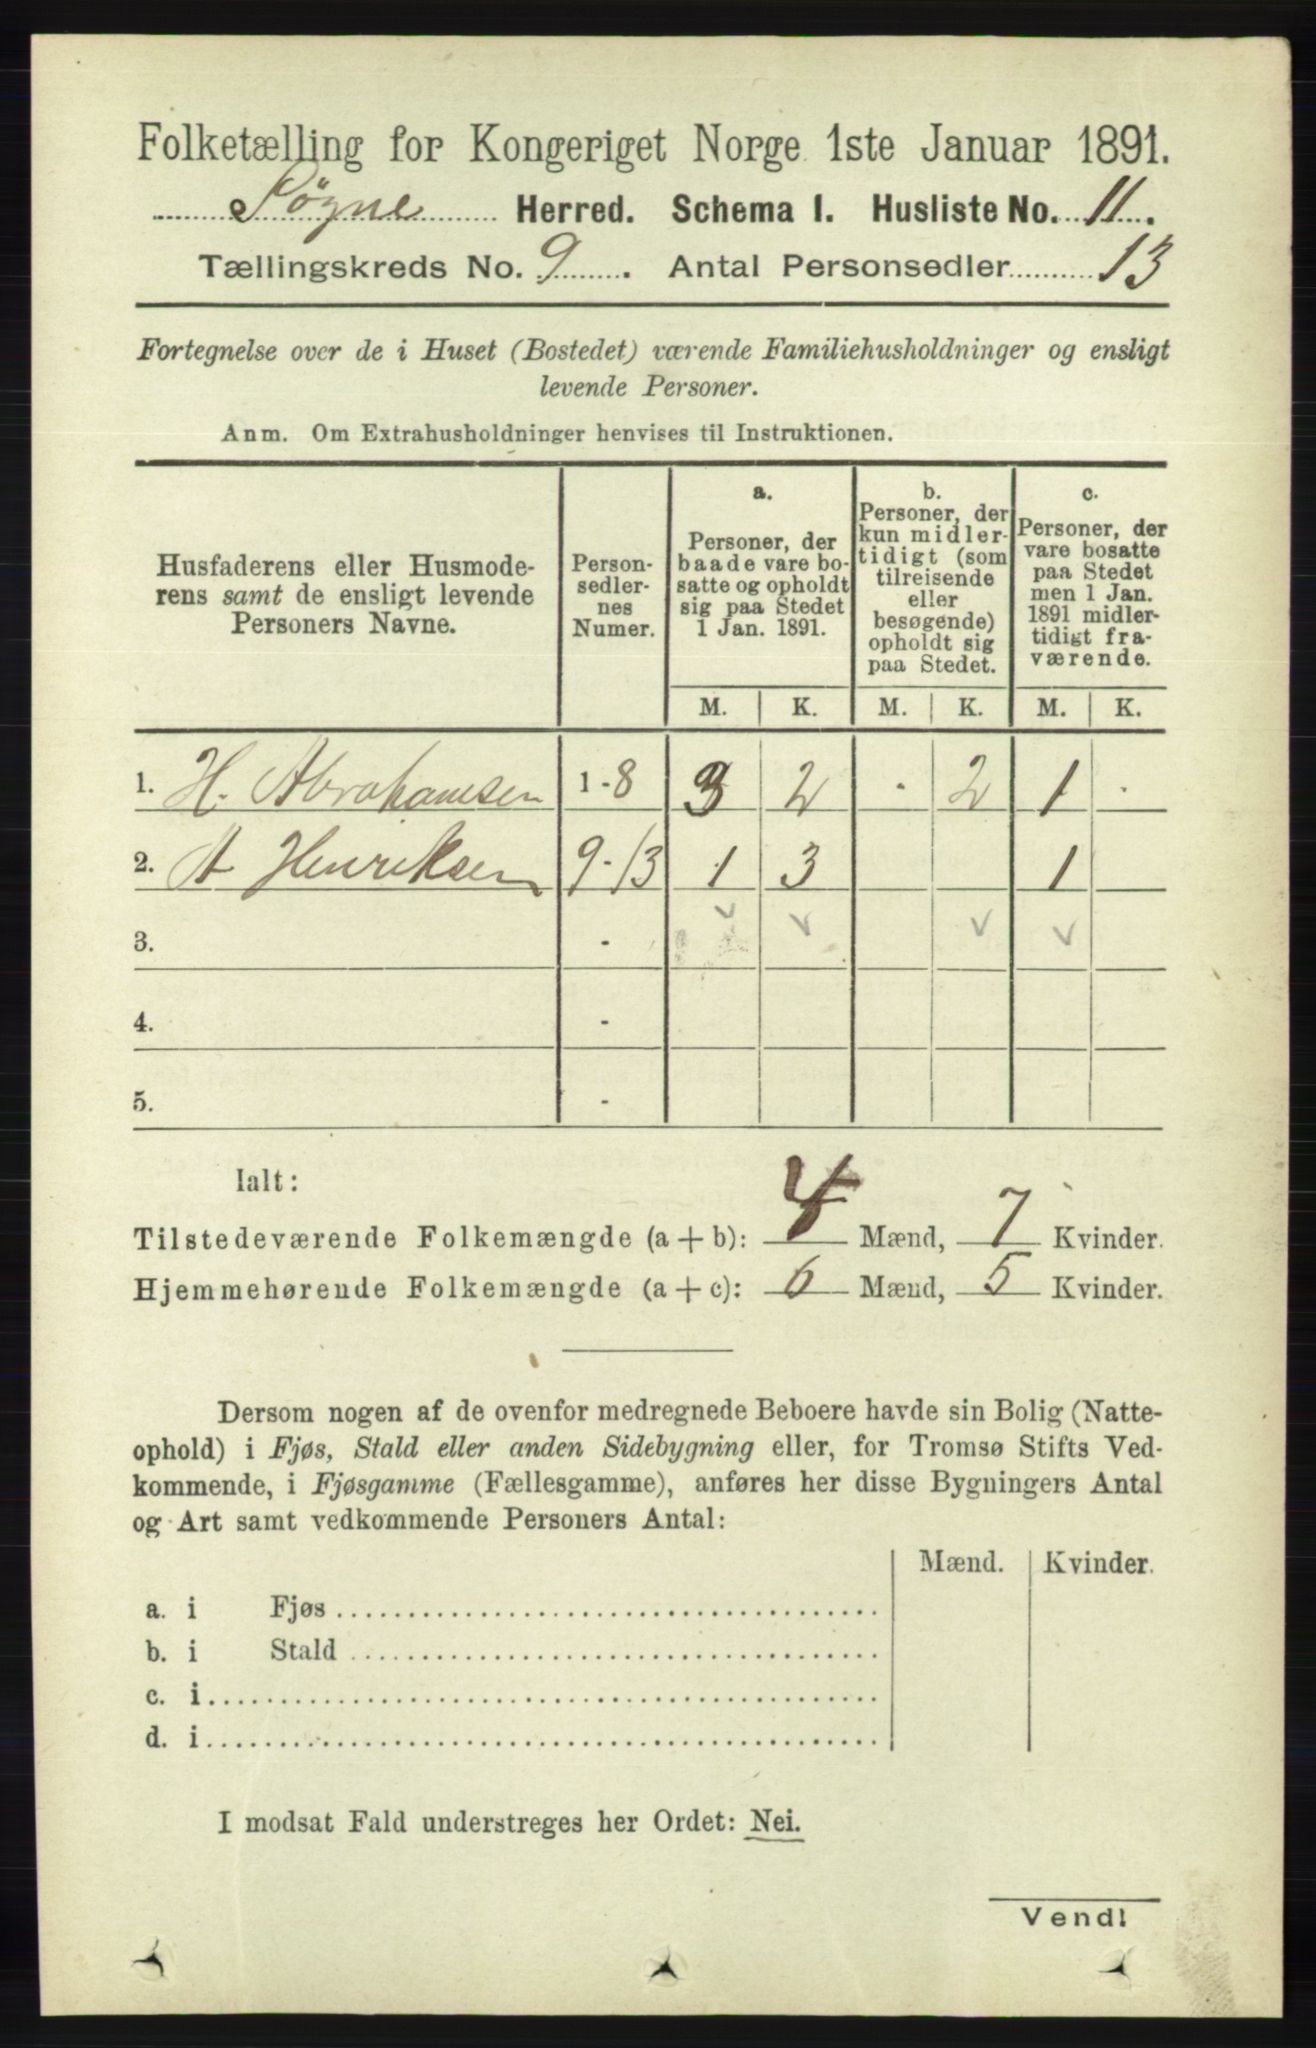 Folketælling for Kongeriget Norge 1ste Januar 1891.
Søgne Herred. Schema I. Husliste No. 11.
Tællingskreds No. 9. Antal Personsedler 13
Fortegnelse over de i Huset (Bostedet) værende Familiehusholdninger og ensligt
levende Personer.
Anm. Om Extrahusholdninger henvises til Instruktionen.
Husfaderens eller Husmode-
rens samt de ensligt levende
Personers Navne.
Person-
sedler-
nes
Numer.
a.
Personer, der
baade vare bo-
satte og opholdt
sig paa Stedet
1 Jan. 1891.
b.
Personer, der
kun midler-
tidigt (som
tilreisende
eller
besøgende)
opholdt sig
paa Stedet.
c.
Personer, der
vare bosatte
paa Stedet
men 1 Jan.
1891 midler-
tidigt fra-
værende.
M. K. M. K. M. K.
1. H. Abrahamsen 1-8 3 2 - 2 1 -
2. A Henriksen 9-13 1 3 1
3. -
4. -
5. -
Ialt:
Tilstedeværende Folkemængde (a + b): 4 Mænd, 7 Kvinder.
Hjemmehørende Folkemængde (a + c): 6 Mænd, 5 Kvinder.
Dersom nogen af de ovenfor medregnede Beboere havde sin Bolig (Natte-
ophold) i Fjøs, Stald eller anden Sidebygning eller, for Tromsø Stifts Ved-
kommende, i Fjøsgamme (Fællesgamme), anføres her disse Bygningers Antal
og Art samt vedkommende Personers Antal:
Mænd. Kvinder.
a. i Fjøs
b. i Stald
c. i
d. i
I modsat Fald understreges her Ordet: Nei.
Vend!